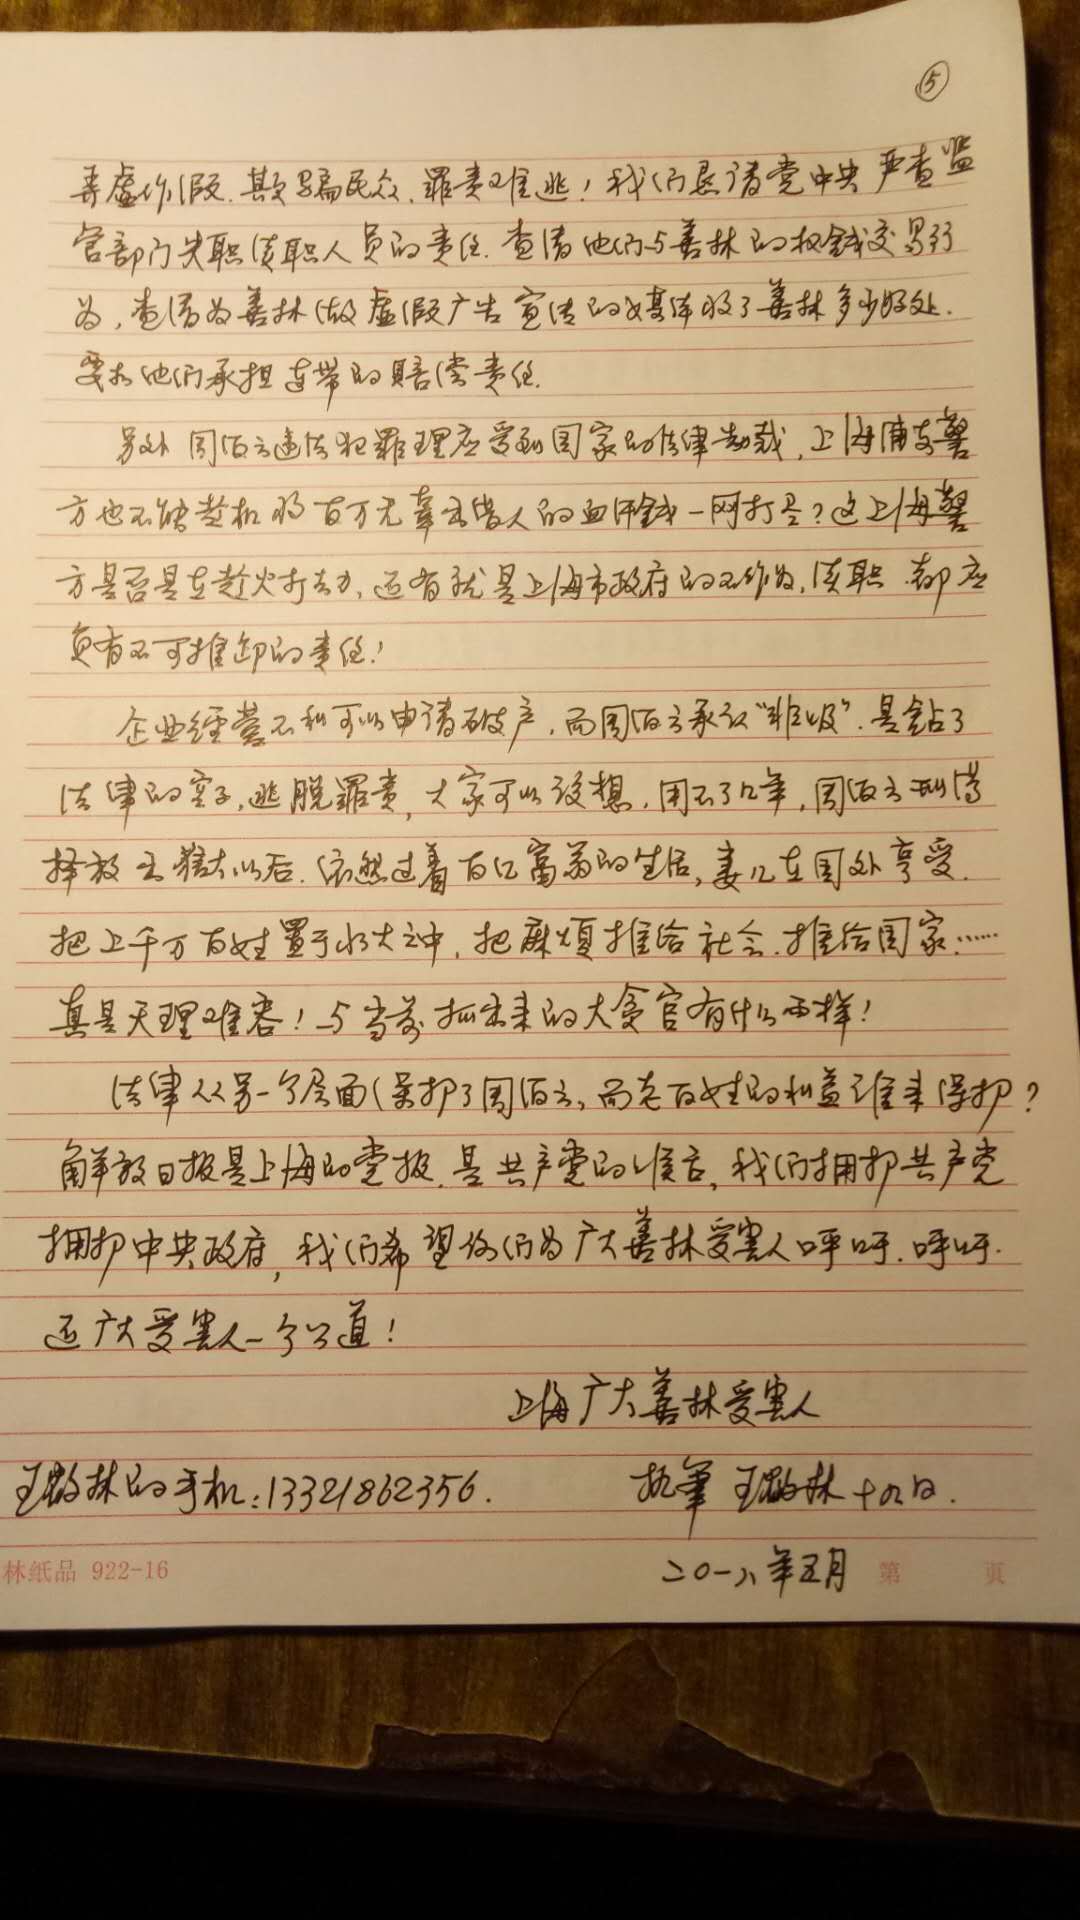 ⑤
弄虚作假、欺骗民众、罪责难逃！我们恳请党中央严查监
官部门失职渎职人员的责任.查清他们与善林的权钱交易行
为，查清为善林做虚假广告宣传的媒体收了善林多少好处.
要求他们承担连带的赔偿责任.
另外周伯云违法犯罪理应受到国家的法律制裁，上海浦东警
方也不能趁机将百万无辜出借人的血汗钱一网打尽？这上海警
方是否是在趁火打劫，还有就是上海市政府的不作为，渎职.都应
负有不可推卸的责任！
企业经营不利可以申请破产，而周伯云承认“非吸”.是钻了
法律的空子，逃脱罪责，大家可以设想，用不了几年，周伯云刑满
释放出狱以后.依然过着百亿富翁的生活，妻儿在国外享受.
把上千万百姓置于水火之中，把麻烦推给社会.推给国家……
真是天理难容！与当前抓出来的大贪官有什么两样！
法律从另一个层面保护了周伯云，而老百姓的利益谁来保护？
解放日报是上海的党报.是共产党的喉舌，我们拥护共产党
拥护中央政府，我们希望你们为广大善林受害人呼吁.呼吁.
还广大受害人一个公道！
上海广大善林受害人
王敬林的手机：13321862356.
执笔 王敬林 十九日.
二〇一八年五月
林纸品 922-16 第 页